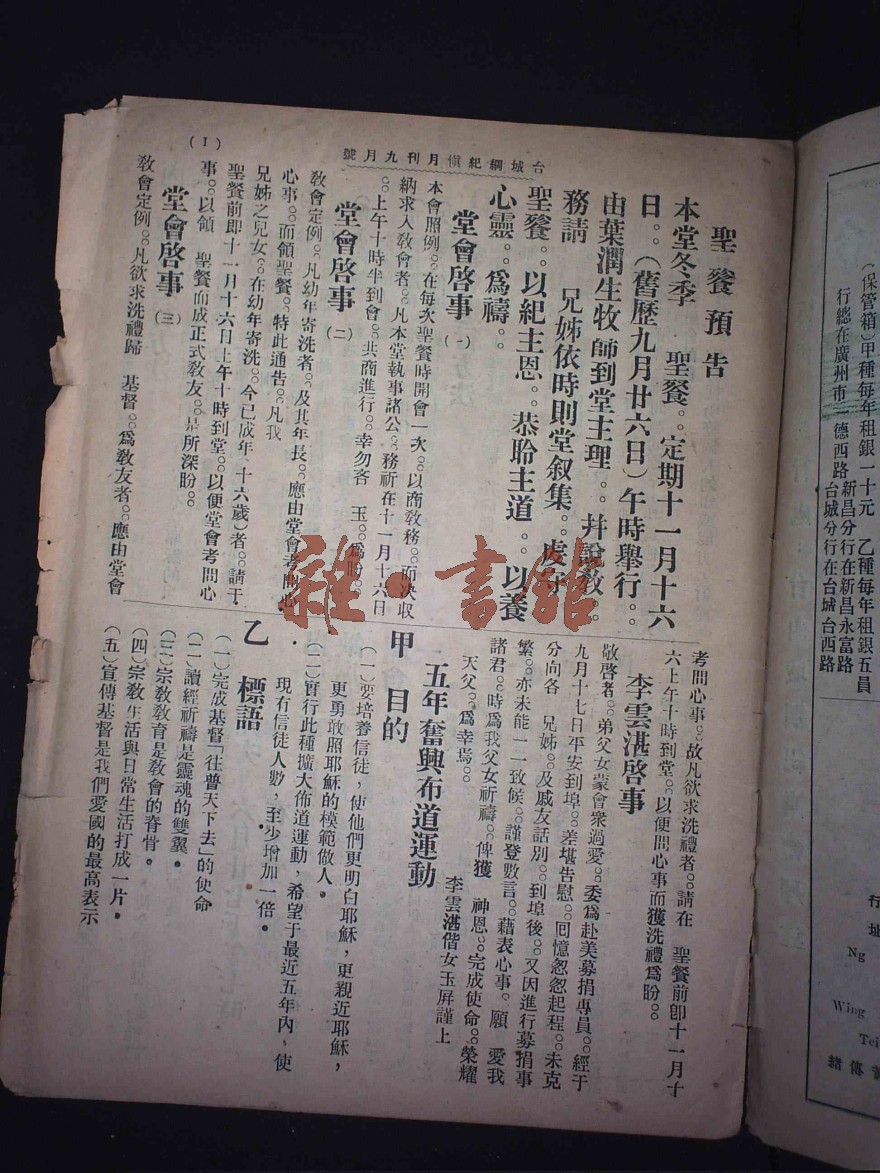 台城綱紀慎月刊九月號
聖餐預告
本堂冬季　聖餐。。定期十一月十六
日。。（舊歷九月廿六日）午時舉行。。
由葉潤生牧師到堂主理。。幷說教。。
務請　兄姊依時則堂叙集。。虔守
聖餐。。以紀主恩。。恭聆主道。。以養
心靈。。爲禱。。
堂會啓事（一）
本會照例。。在每次聖餐時開會一次。。以商敎務。。而決收
納求入敎會者。。凡本堂執事諸公。。務祈在十一月十六日
。。上午十時半到會。。共商進行。。幸勿吝　玉。。爲盼。。
堂會啓事（二）
敎會定例。。凡幼年寄洗者。。及其年長。。應由堂會考問心
心事。。而領聖餐。。特此通告。。凡我
兄姊之兒女。。在幼年寄洗。。今已成年（十六歲）者。。請于
聖餐前即十一月十六日上午十時到堂。。以便堂會考問心
事。。以領　聖餐而成正式敎友。。是所深盼。。
堂會啓事（三）
敎會定例。。凡欲求洗禮歸　基督。。爲敎友者。。應由堂會
（1）
考問心事。。故凡欲求洗禮者。。請在　聖餐前卽十一月十
六上午十時到堂。。以便問心事而獲洗禮爲盼。。
李雲湛啓事
敬啓者。。弟父女蒙會衆過愛。。委爲赴美募捐專員。。經于
九月十七日平安到埠。。差堪告慰。。回憶怱怱起程。。未克
分向各　兄姊。。及戚友話別。。到埠後。。又因進行募捐事
繁。。亦未能一一致候。。謹登數言。。藉表心事。願　愛我
諸君。。時爲我父女祈禱。。俾獲　神恩。。完成使命。。榮耀
天父。。爲幸焉。。
李雲湛偕女玉屏謹上
五年奮興布道運動
甲　目的
（一）要培養信徒，使他們更明白耶穌，更親近耶穌，
更勇敢照耶穌的模範做人。
（二）實行此種擴大佈道運動，希望于最近五年內，使
現有信徒人數，至少增加一倍。
乙　標語
（一）完成基督「往普天下去」的使命
（二）讀經祈禱是靈魂的雙翼。
（三）宗敎敎育是敎會的脊骨。
（四）宗敎生活與日常生活打成一片。
（五）宣傳基督是我們愛國的最高表示
（保管箱）甲種每年租銀一十元　乙種每年租銀五員
行總在廣州市一德西路台城分行在台城台西路
新昌分行在新昌永富路
行
址
Ng
Wing
Tei
傳緒
雜·書館